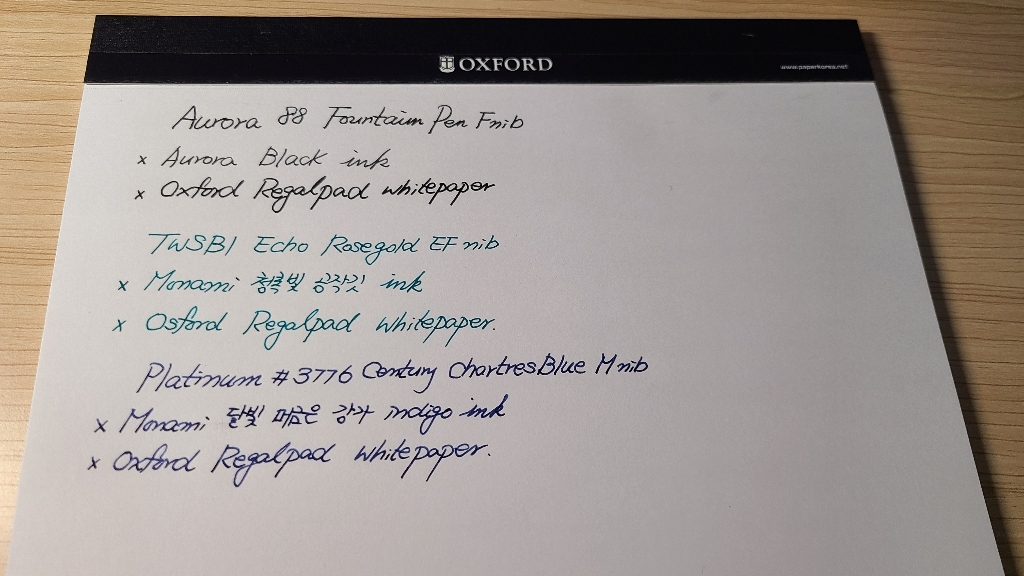 OXFORD
www.paperkorea.net
Aurora 88 Fountain Pen F nib
x Aurora Black ink
x Oxford Regalpad whitepaper
TWSBI Echo Rosegold EF nib
x Monami 청록빛 공작깃 ink
x Osford Regalpad whitepaper.
Platinum #3776 Century Chartres Blue M nib
x Monami 달빛 머금은 강가 indigo ink
x Oxford Regalpad whitepaper.